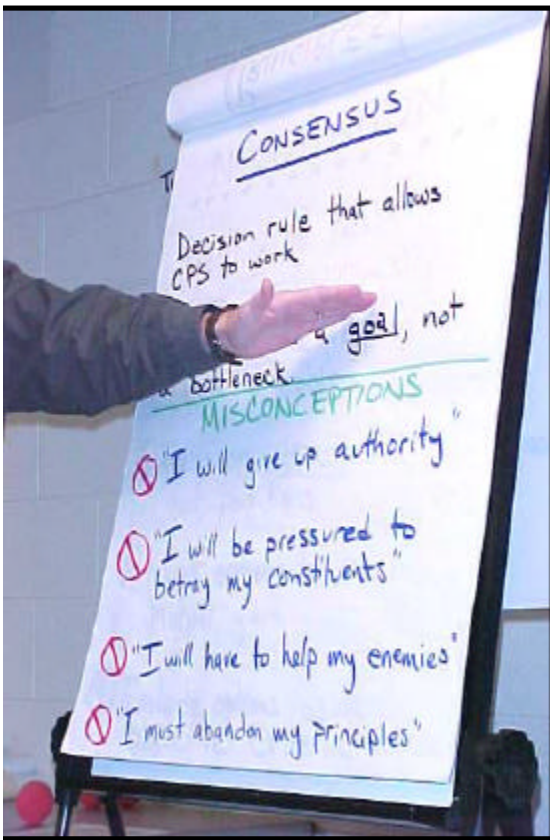 CONSENSUS
Decision rule that allows
CPS to work
a goal, not
a bottleneck.
MISCONCEPTIONS
"I will give up authority"
"I will be pressured to
betray my constituents"
"I will have to help my enemies"
"I must abandon my principles"